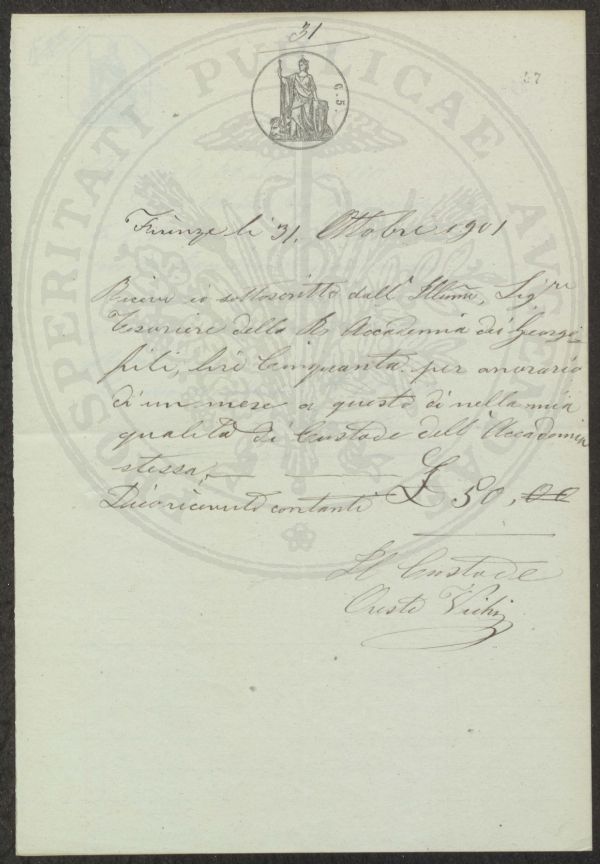 31
6.5.
PROSPERITATI PUBLICAE AUGENDAE
Firenze li 31, Ottobre 1901
Ricevo io sottoscritto dall' Illmo, Sigre
Tesoriere della R. Accademia dei Georgo-
fili, lire Cinquanta per onorario
di un mese a questo dì nella mia
qualità di Custode dell' Accademia
stessa,
Dico ricevuto contanti £ 50, 00
Il Custode
Oreste